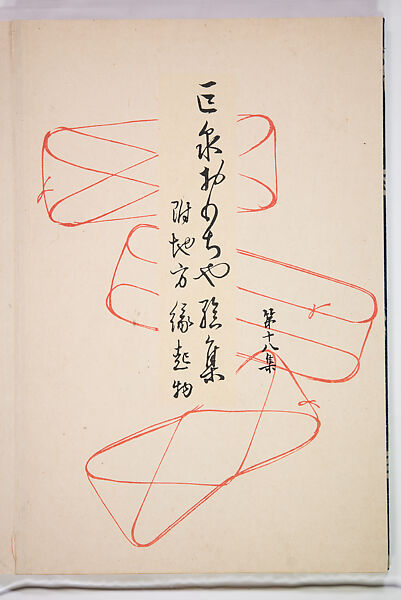 巨泉おもちや絵集
附地方縁起物
第十八集